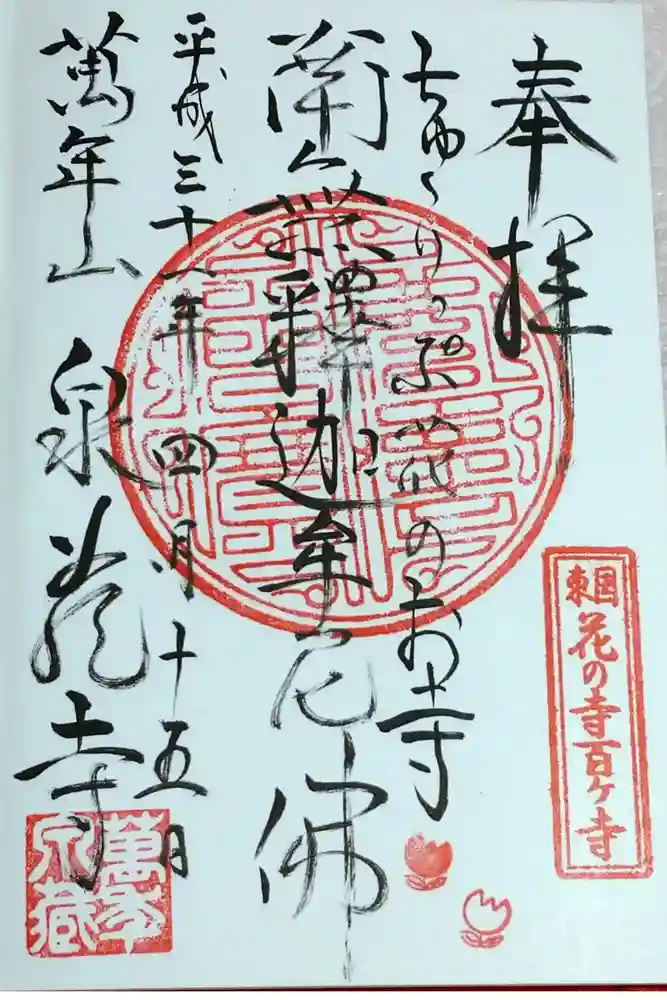 奉拝
ちゅうりっぷ花のお寺
南無釋迦牟尼佛
平成三十一年四月十五日
萬年山 泉蔵寺
東国
花の寺百ケ寺
萬年
泉蔵